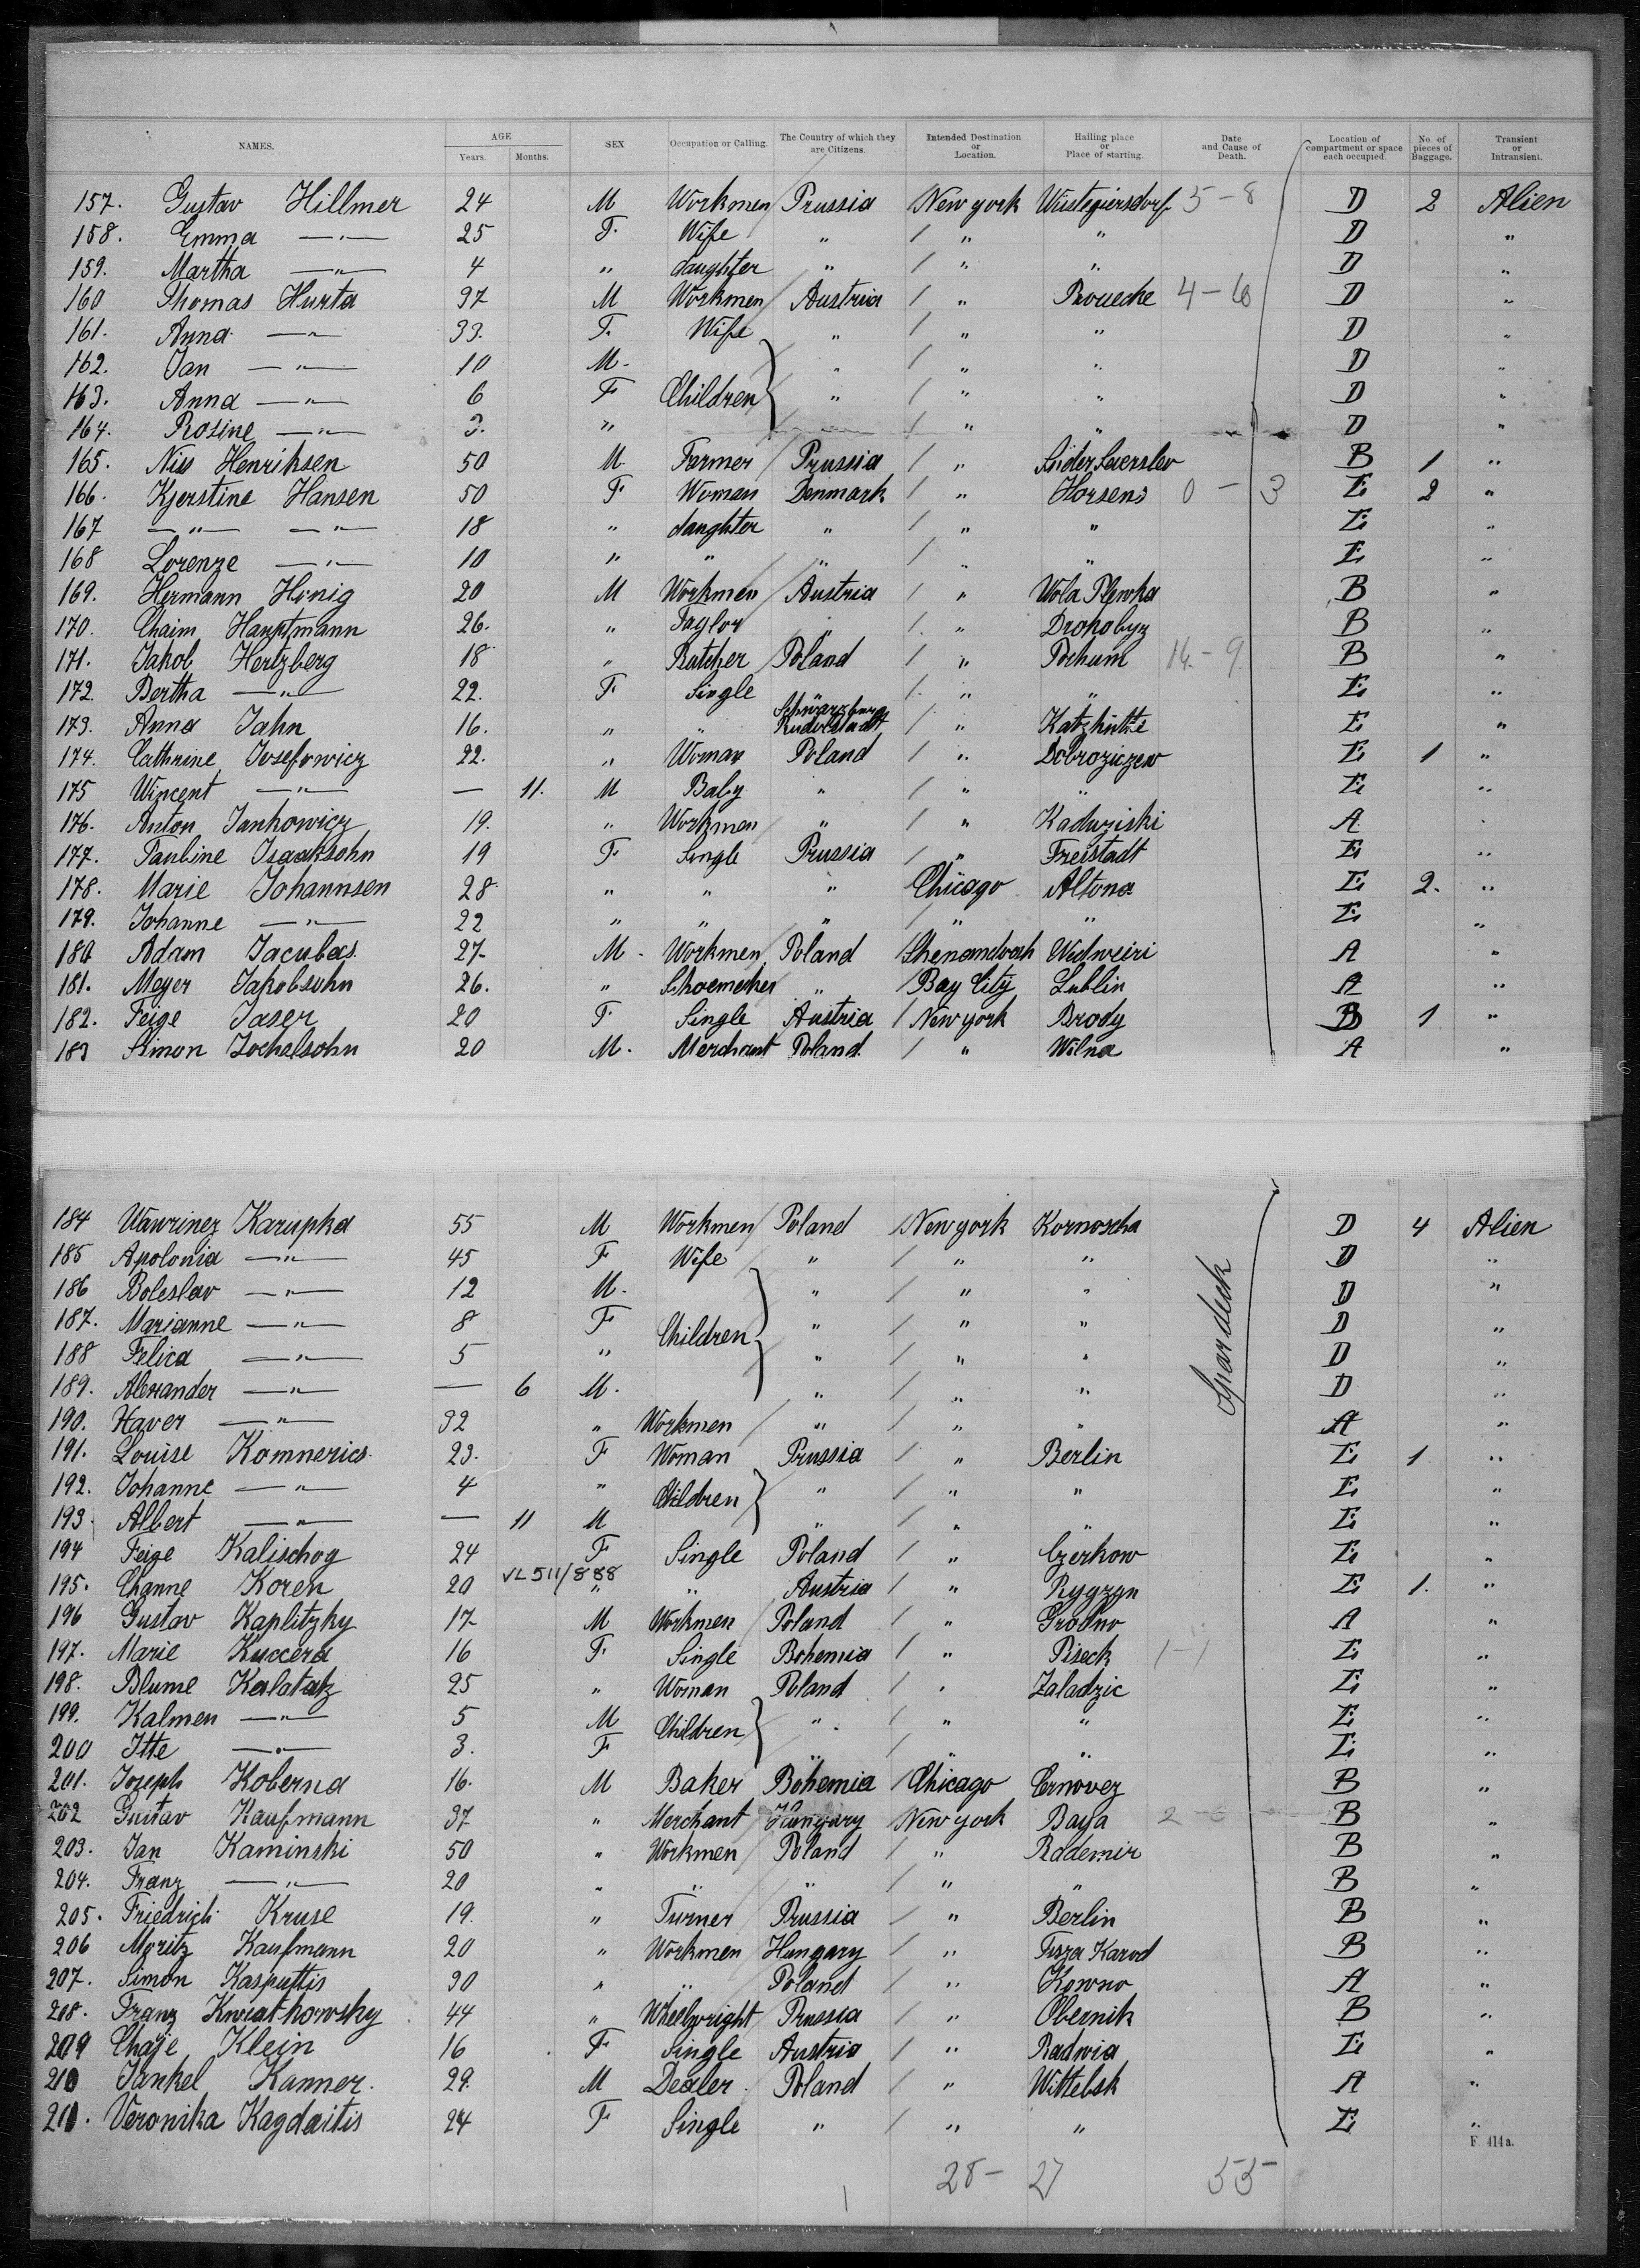 NAMES. AGE Years. Months. SEX Occupation or Calling. The Country of which they are Citizens. Intended Destination or Location. Hailing place or Place of starting. Date and Cause of Death. Location of compartment or space each occupied. No. of pieces of Baggage. Transient or Intransient.
157. Gustav Hillmer 24 M Workmen Prussia New york Wüstegiersdorf 5 - 8 D 2 Alien
158. Emma —"— 25 F. Wife " / " " D "
159. Martha —"— 4 " daughter " / " " D "
160 Thomas Hurta 37 M Workmen Austria / " 4 - 6 D "
161. Anna —"— 33. F. Wife " / " " D "
162. Jan —"— 10 M. " / " " D "
163. Anna —"— 6 F Children " / " " D "
164. Rosine —"— 3. " / " " D "
165. Niss Henriksen 50 M. Farmer Prussia / " B 1 "
166. Kjerstine Hansen 50 F Woman Denmark / " Horsens 0 - 3 E 2 "
167 —"— —"— 18 " daughter " / " " E "
168 Lorenze —"— 10 " " " / " " E "
169. Hermann Honig 20 M Workmen Austria / " Wola Plewka B "
170. Chaim Hauptmann 26. " Taylor " / " Drohobyz B "
171. Jakob Hertzberg 18 " Butcher Poland / " Bochum 14 - 9 B "
172. Bertha —"— 22. F. Single / " " E "
173. Anna Jahn 16. " " Schwarzburg Rudolstadt / " Katzhütte E "
174. Cathrine Josefowicz 22. " Woman Poland / " Dobroziczew E 1 "
175 Wincent —"— — 11. M Baby " / " " E "
176. Anton Jankowicz 19. " Workmen " / " Kaduziski A "
177. Pauline Isaaksohn 19 F Single Prussia / " Freistadt E "
178. Marie Johannsen 28 " " " Chicago Altona E 2. "
179. Johanne —"— 22 " " " / " " E "
180 Adam Jacubas 27 M. Workmen Poland / Shenandoah Widweiri A "
181. Meyer Jakobsohn 26. " Schoemaker " / Bay City Lublin A "
182. Feige Jaser 20 F Single Austria / New york Brody B 1 "
183 Simon Jochelsohn 20 M. Merchant Poland / " Wilna A "
184 Wawrinez Karupka 55 M Workmen Poland / New york Kornoscha D 4 Alien
185 Apolonia —"— 45 F Wife " / " " D "
186 Boleslav —"— 12 M. " / " " D "
187. Marianne —"— 8 F Children " / " " D "
188 Felica —"— 5 " " / " " D "
189. Alexander —"— — 6 M. " / " " D "
190. Xaver —"— 32 " Workmen " / " " A "
Spardeck
191. Louise Komnerics 23. F Woman Prussia / " Berlin E 1 "
192. Johanne —"— 4 " Children " / " " E "
193. Albert —"— — 11 M " / " " E "
194 Feige Kalischog 24 F Single Poland / " Czerkow E "
VL 511/888
195. Channe Koren 20 " " Austria / " Rygzgn E 1. "
196 Gustav Kaplitzky 17 M Workmen Poland / " Grodno A "
197. Marie Kuccera 16 F. Single Bohemia / " Piseck 1-1 E "
198. Blume Kalatatz 25 " Woman Poland / " Zaladzic E "
199. Kalmen —"— 5 M Children " / " " E "
200 Itte —"— 3. F " / " " E "
201. Joseph Koberna 16. M Baker Bohemia / Chicago Cernovez B "
202 Gustav Kaufmann 37 " Merchant Hungary New york Baya B "
203. Jan Kaminski 50 " Workmen Poland / " Rademir B "
204. Franz —"— 20 " " " / " " B "
205. Friedrich Kruse 19. " Turner Prussia / " Berlin B "
206 Moritz Kaufmann 20 " Workmen Hungary / " Tisza Karod B "
207. Simon Kasputtis 30 " " Poland / " Kowno A "
208. Franz Kwiathowsky 44 " Wheelwright Prussia / " Obernik B "
209 Chaje Klein 16 F Single Austria / " Radwia E "
210 Jankel Kanner. 29. M Dealer. Poland / " Wittebsk A "
211. Veronika Kagdaitis 24 F Single " / " " E "
F. 414a.
28 - 27 55